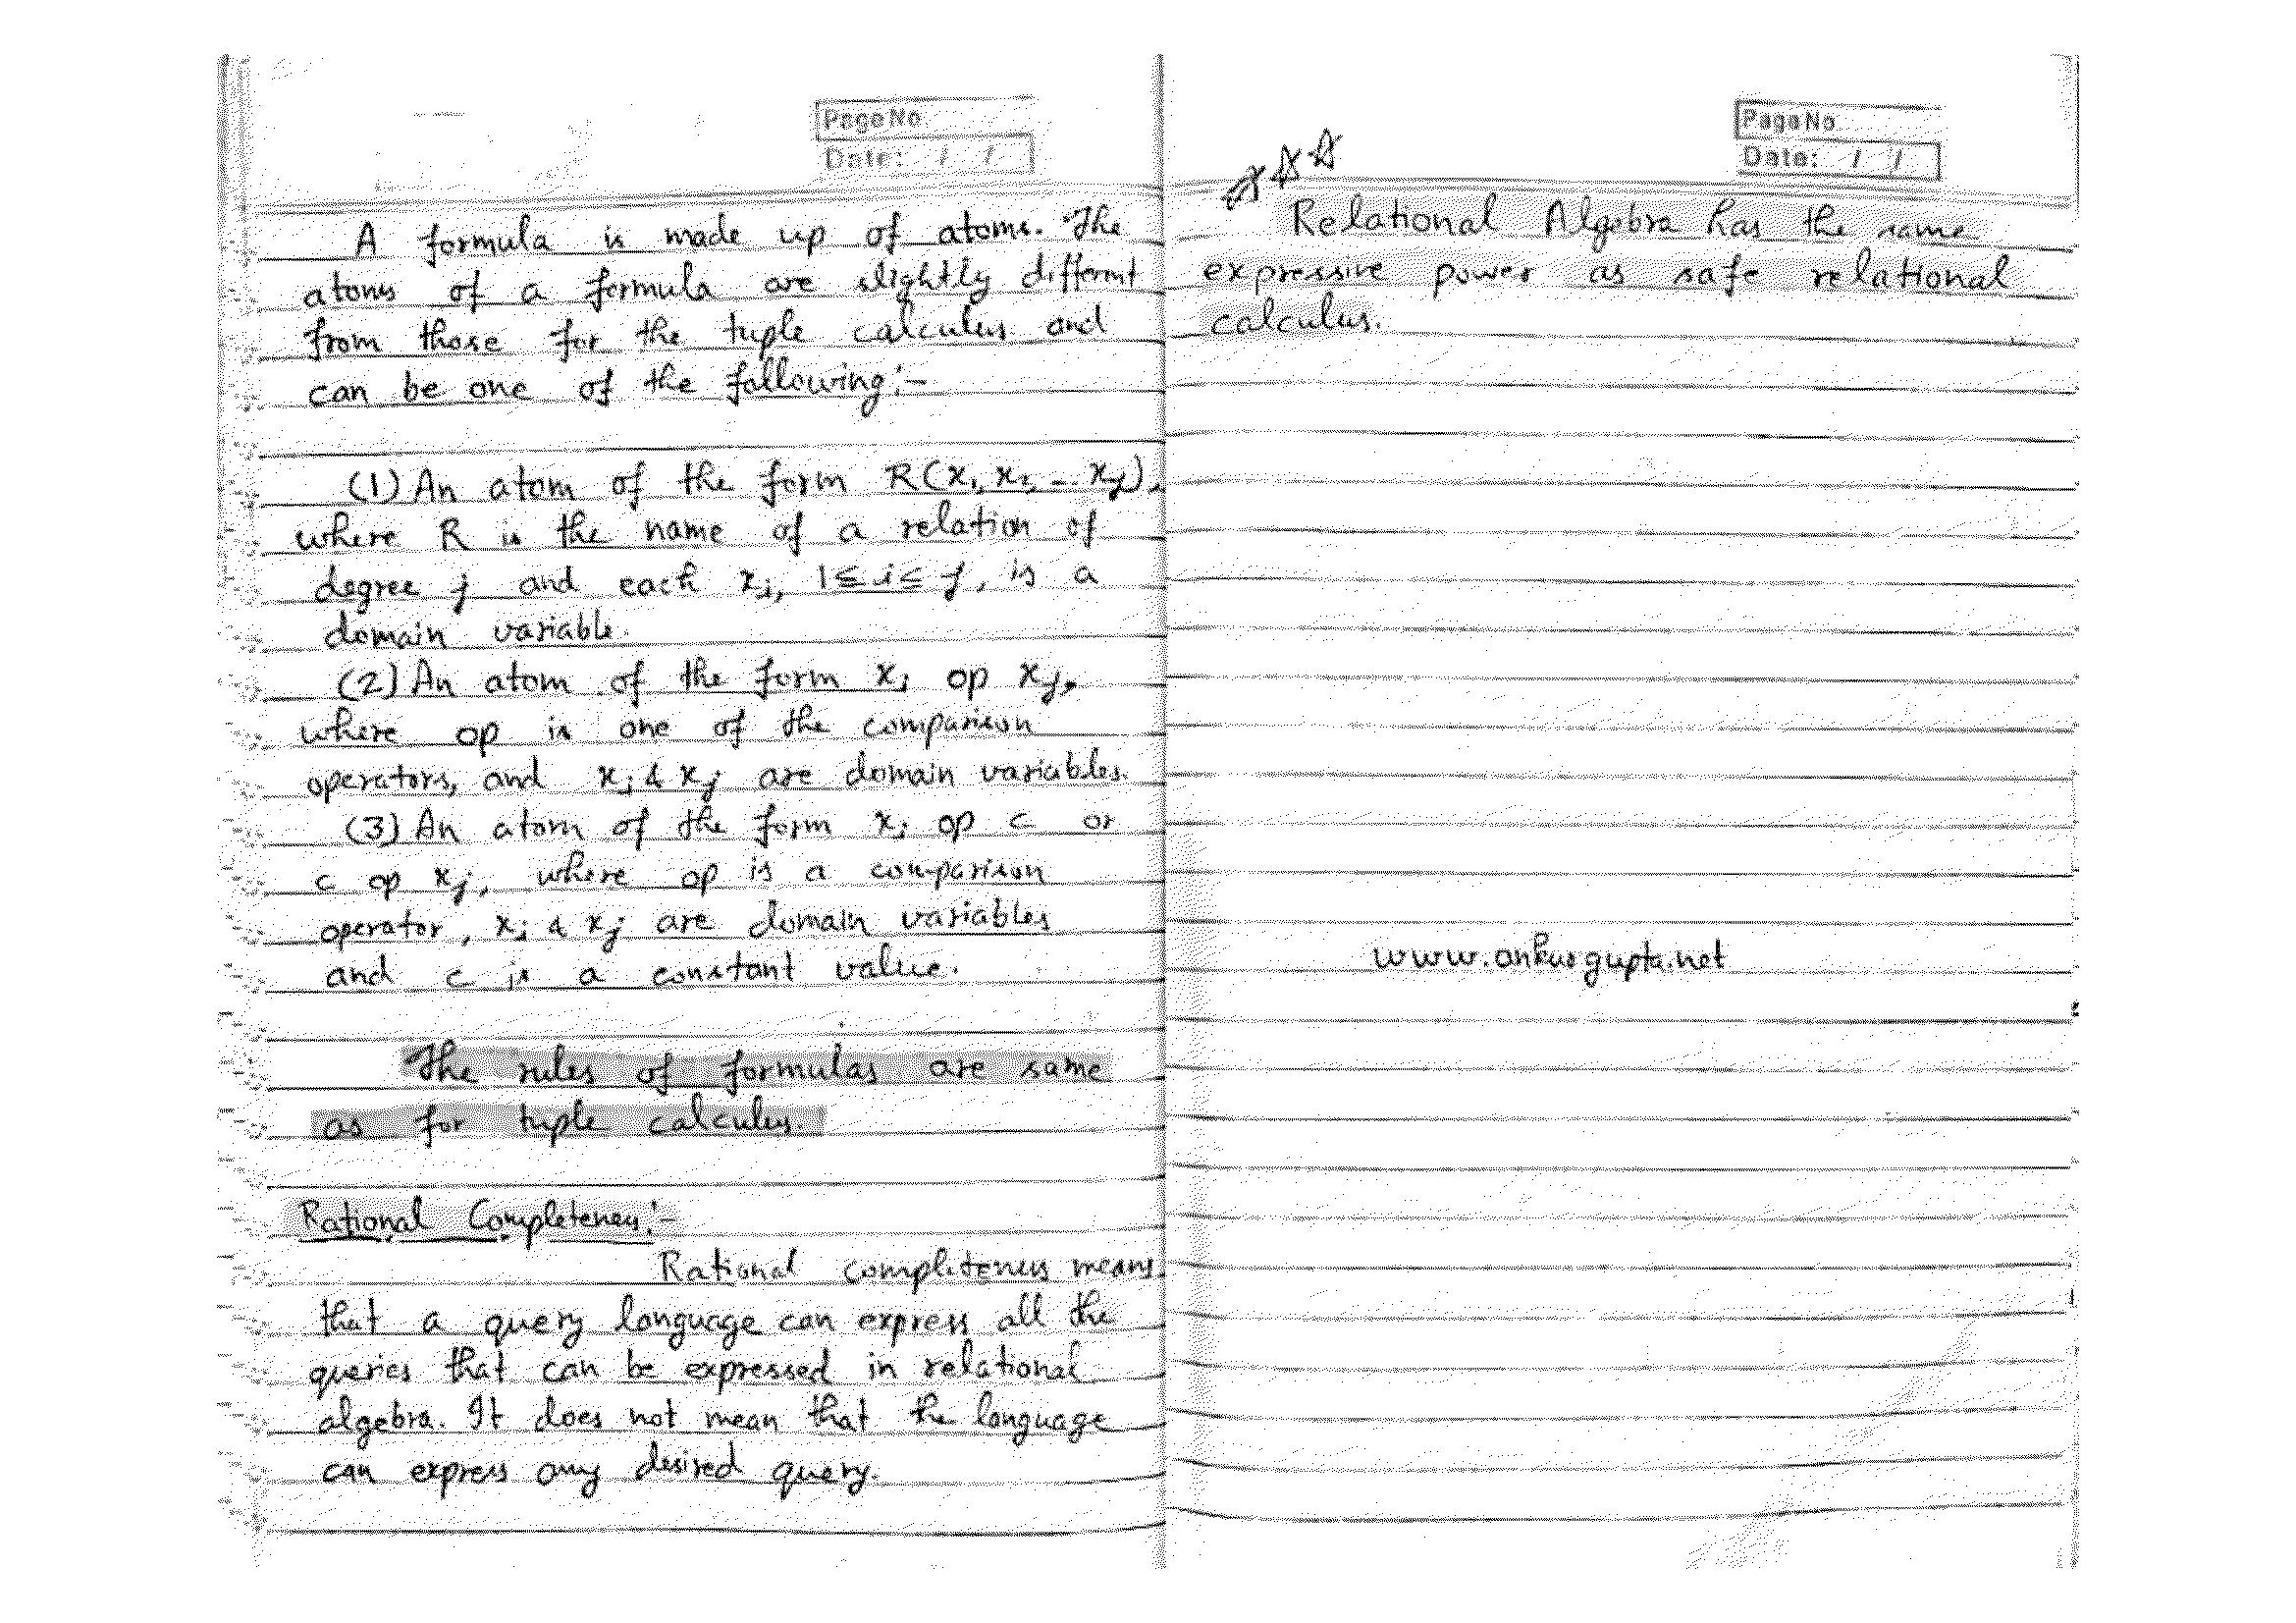 Page No.
Date: / /
A formula is made up of atoms. The
atoms of a formula are slightly different
from those for the tuple calculus and
can be one of the following:-
(1) An atom of the form R(x₁, x₂, ... xⱼ),
where R is the name of a relation of
degree j and each xᵢ, 1 ≤ i ≤ j, is a
domain variable.
(2) An atom of the form xᵢ op xⱼ,
where op is one of the comparison
operators, and xᵢ & xⱼ are domain variables.
(3) An atom of the form xᵢ op c or
c op xⱼ, where op is a comparison
operator, xᵢ & xⱼ are domain variables
and c is a constant value.
The rules of formulas are same
as for tuple calculus.
Rational Completeness:-
Rational completeness means
that a query language can express all the
queries that can be expressed in relational
algebra. It does not mean that the language
can express any desired query.
Page No.
Date: / /
Relational Algebra has the same
expressive power as safe relational
calculus.
www.ankurgupta.net